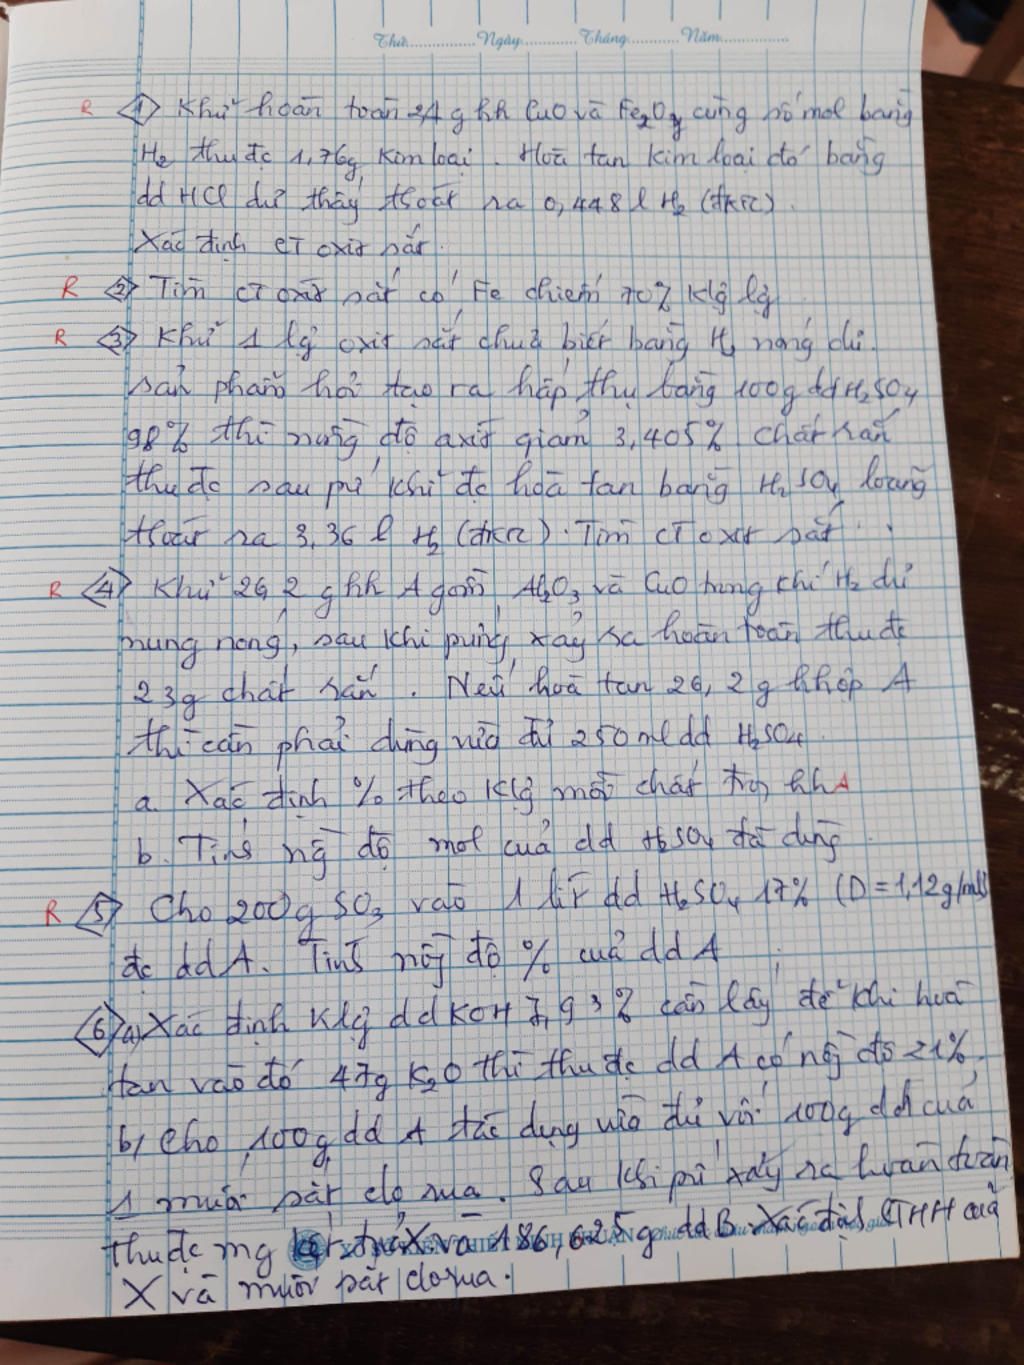 Thứ............Ngày............Tháng............Năm............
R <1> Khử hoàn toàn 2,4 g hh CuO và FexOy cùng số mol bằng
H2 thu đc 1,76g kim loại. Hoà tan kim loại đó bằng
dd HCl dư thấy thoát ra 0,448 l H2 (đktc).
Xác định CT oxit sắt.
R <2> Tìm CT oxit sắt có Fe chiếm 70% klg lg
R <3> Khử 1 lg oxit sắt chưa biết bằng H2 nóng dư.
sản phẩm hơi tạo ra hấp thụ bằng 100g dd H2SO4
98% thì nồng độ axit giảm 3,405% chất rắn
thu đc sau pứ khử đc hoà tan bằng H2SO4 loãng
thoát ra 3,36 l H2 (đktc). Tìm CT oxit sắt.
R <4> Khử 26,2 g hh A gồm Al2O3 và CuO trong khí H2 dư
nung nóng, sau khi pứng xảy ra hoàn toàn thu đc
23g chất rắn. Nếu hoà tan 26,2 g hhợp A
thì cần phải dùng vừa đủ 250ml dd H2SO4.
a. Xác định % theo klg mỗi chất trg hh A
b. Tính ng độ mol của dd H2SO4 đã dùng.
R <5> Cho 200g SO3 vào 1 lít dd H2SO4 17% (D = 1,12g/ml)
đc dd A. Tính nồg độ % của dd A
<6> a) Xác định klg dd KOH 7,93% cần lấy để khi hoà
tan vào đó 47g K2O thì thu đc dd A có ng độ 21%.
b, Cho 100g dd A tác dụng vừa đủ với 100g dd của
1 muối sắt clorua. Sau khi pứ xảy ra hoàn toàn
thu đc mg kết tủa X và 186,625g dd B. Xác định CTHH của
X và muối sắt clorua.